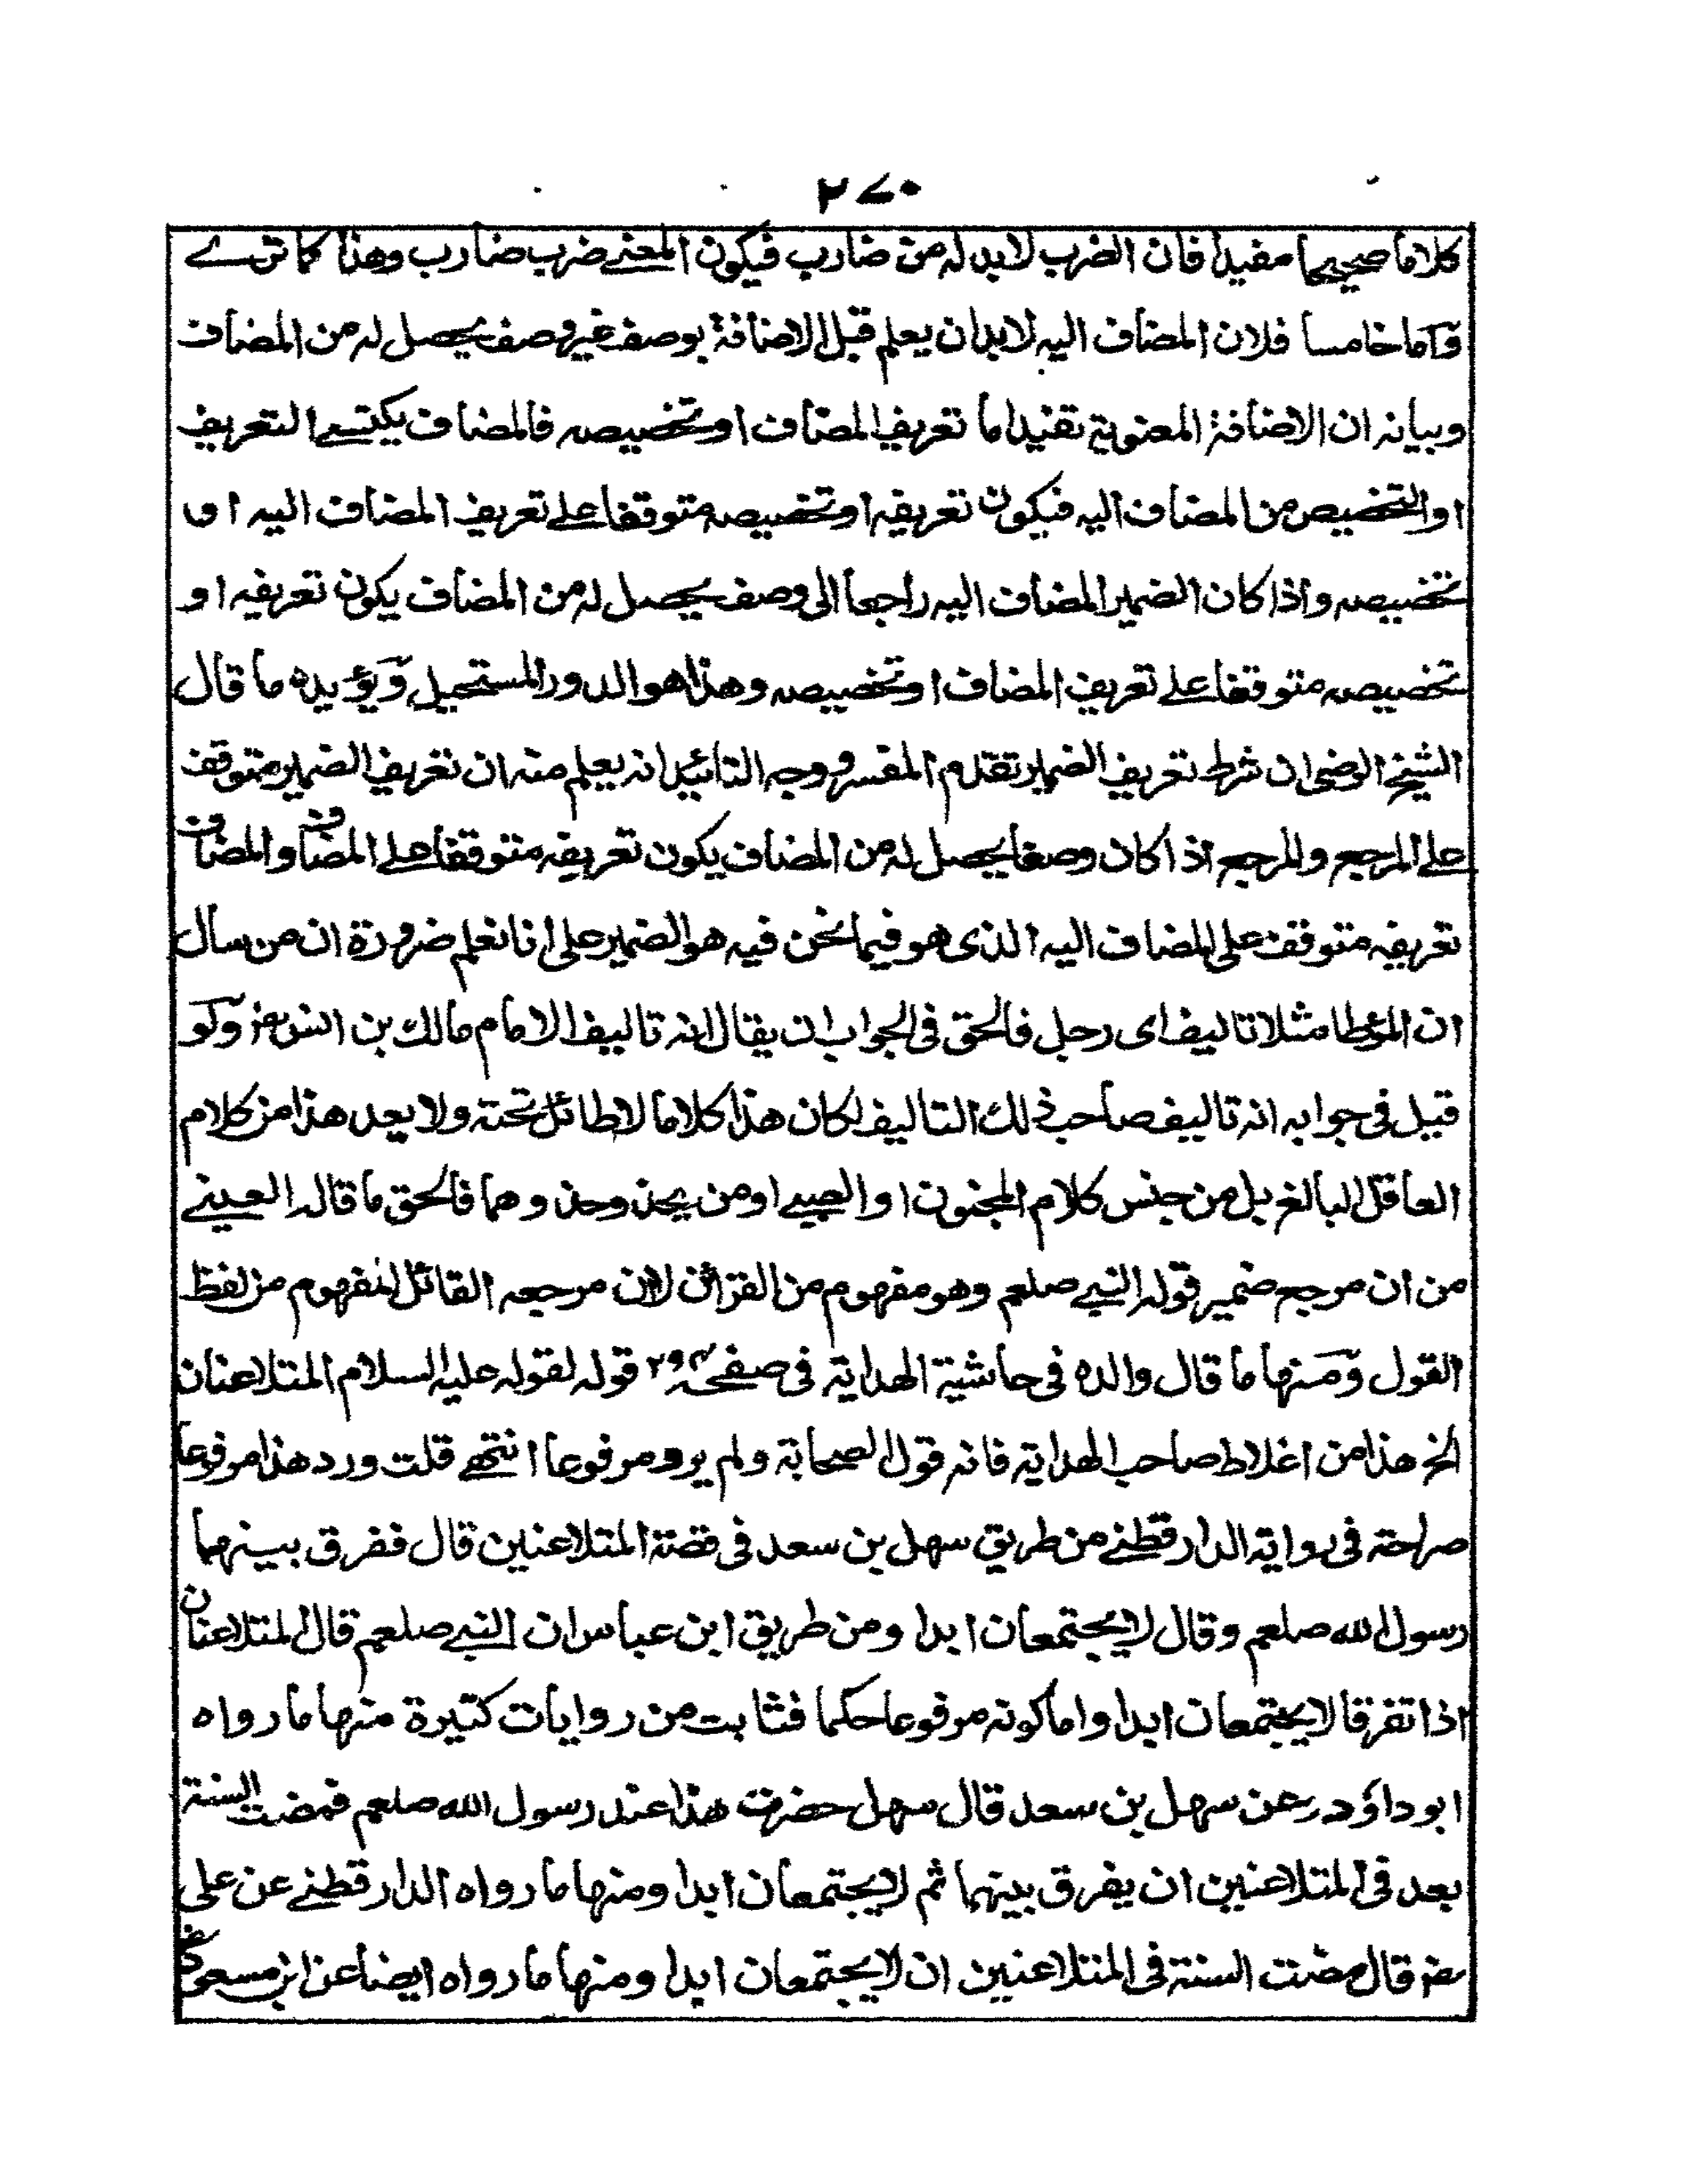 ٢٧٠
كلاما صحيحا مفيدا فان الضرب لابد له من ضارب فيكون المعنے ضرب ضارب وهذا كما ترے
وَاما خامسا فلان المضاف اليه لابد ان يعلم قبل الاضافة بوصف غير وصف يحصل له من المضاف
وبيانه ان الاضافة المعنوية تفيد اما تعريف المضاف او تخصيصه فالمضاف يكتسے التعريف
او التخصيص من المضاف اليه فيكون تعريفه او تخصيصه متوقفا علے تعريف المضاف اليه او
تخصيصه واذا كان الضمير المضاف اليه راجعا الى وصف يحصل له من المضاف يكون تعريفه او
تخصيصه متوقفا علے تعريف المضاف او تخصيصه وهذا هو الدور المستحيل وَيؤيده ما قال
الشيخ الرضى ان شرط تعريف الضمير تقدم المفسر ووجه التائيد انه يعلم منه ان تعريف الضمير متوقف
علے المرجع والمرجع اذا كان وصفا يحصل له من المضاف يكون تعريفه متوقفا علے المضاف والمضاف
تعريفه متوقف على المضاف اليه الذى هو فيما نحن فيه هو الضمير على انا نعلم ضرورة ان من سأل
ان المؤطا مثلا تاليف اى رجل فالحق فى الجواب ان يقال انه تاليف الامام مالك بن انس رض وَلو
قيل فى جوابه انه تاليف صاحب ذلك التاليف لكان هذا كلاما لا طائل تحته ولا يعد هذا من كلام
العاقل البالغ بل من جنس كلام المجنون او الصبے او من يحذو حذوهما فالحق ما قاله العينے
من ان مرجع ضمير قوله النبے صلعم وهو مفهوم من القرائن لان مرجعه القائل المفهوم من لفظ
القول وَمنها ما قال والده فى حاشية الهداية فى صفحه ٣٩٢ قوله لقوله عليه السلام المتلاعنان
الخ هذا من اغلاط صاحب الهداية فانه قول الصحابة ولم يرو مرفوعا انتهے قلت ورد هذا مرفوعا
صراحة فى رواية الدار قطنے من طريق سهل بن سعد فى قصة المتلاعنين قال ففرق بينهما
رسول الله صلعم وقال لا يجتمعان ابدا ومن طريق ابن عباس ان النبے صلعم قال المتلاعنان
اذا تفرقا لا يجتمعان ابدا واما كونه مرفوعا حكما فثابت من روايات كثيرة منها ما رواه
ابو داؤد عن سهل بن سعد قال سهل حضرت هذا عند رسول الله صلعم فمضت السنة
بعد فى المتلاعنين ان يفرق بينهما ثم لا يجتمعان ابدا ومنها ما رواه الدار قطنے عن على
رض قال مضت السنة فى المتلاعنين ان لا يجتمعان ابدا ومنها ما رواه ايضا عن ابن مسعود